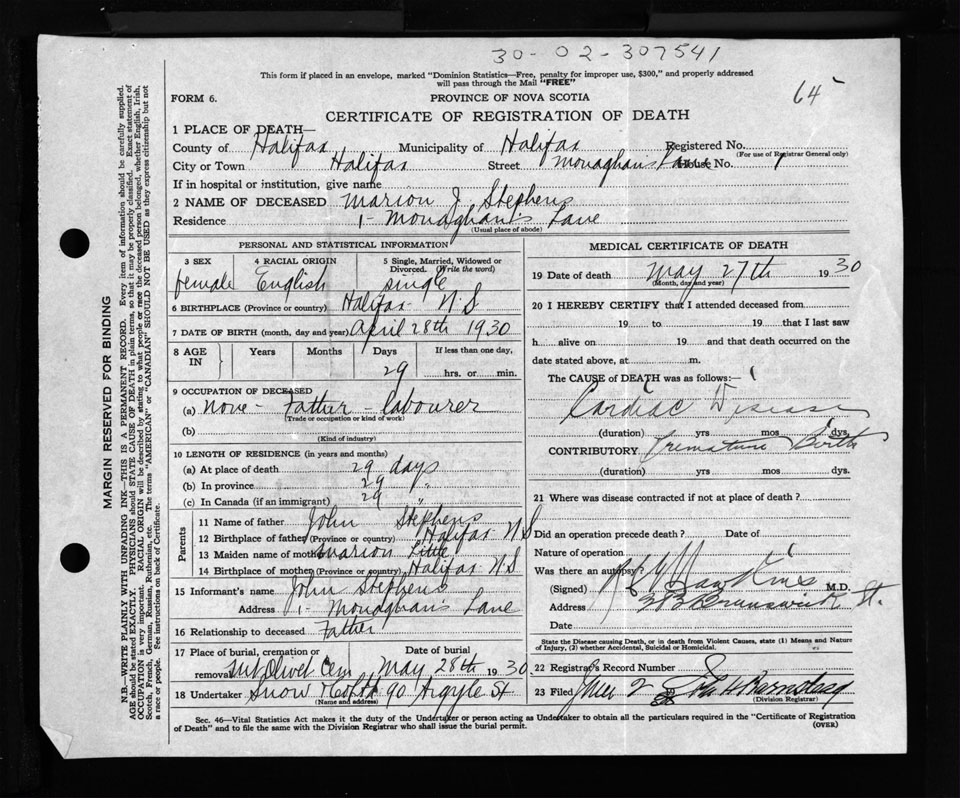 30-02-307541
This form if placed in an envelope, marked "Dominion Statistics—Free, penalty for improper use, $300," and properly addressed
will pass through the Mail "FREE"
64
FORM 6.
PROVINCE OF NOVA SCOTIA
CERTIFICATE OF REGISTRATION OF DEATH
1 PLACE OF DEATH—
County of Halifax Municipality of Halifax Registered No.
(For use of Registrar General only)
City or Town Halifax Street Monaghans Lane House No. 1
If in hospital or institution, give name
2 NAME OF DECEASED Marion J. Stephens
Residence 1- Monaghan's Lane
(Usual place of abode)
PERSONAL AND STATISTICAL INFORMATION
3 SEX female
4 RACIAL ORIGIN English
5 Single, Married, Widowed or Divorced. (Write the word) single
6 BIRTHPLACE (Province or country) Halifax N.S
7 DATE OF BIRTH (month, day and year) April 28th 1930
8 AGE IN Years Months Days 29 If less than one day, hrs. or min.
9 OCCUPATION OF DECEASED
(a) None - Father - labourer
(Trade or occupation or kind of work)
(b)
(Kind of industry)
10 LENGTH OF RESIDENCE (in years and months)
(a) At place of death 29 days
(b) In province 29 "
(c) In Canada (if an immigrant) 29 "
Parents
11 Name of father John Stephens
12 Birthplace of father (Province or country) Halifax N.S
13 Maiden name of mother Marion Little
14 Birthplace of mother (Province or country) Halifax N.S
15 Informant's name John Stephens
Address 1- Monaghans Lane
16 Relationship to deceased Father
17 Place of burial, cremation or removal Mt Olivet Cem
Date of burial May 28th 1930
18 Undertaker Snow & Co Ltd 90 Argyle St
(Name and address)
MEDICAL CERTIFICATE OF DEATH
19 Date of death May 27th 1930
(Month, day and year)
20 I HEREBY CERTIFY that I attended deceased from
19 to 19 that I last saw
h alive on 19 and that death occurred on the
date stated above, at m.
The CAUSE of DEATH was as follows:—
Cardiac Disease
(duration) yrs mos dys.
CONTRIBUTORY Premature Birth
(duration) yrs mos dys.
21 Where was disease contracted if not at place of death?
Did an operation precede death? Date of
Nature of operation
Was there an autopsy?
(Signed) Hawkins M.D.
Address Brunswick St.
Date
State the Disease causing Death, or in death from Violent Causes, state (1) Means and Nature
of Injury, (2) whether Accidental, Suicidal or Homicidal.
22 Registrar's Record Number
23 Filed 2
(Division Registrar)
Sec. 46—Vital Statistics Act makes it the duty of the Undertaker or person acting as Undertaker to obtain all the particulars required in the "Certificate of Registration
of Death" and to file the same with the Division Registrar who shall issue the burial permit.
(OVER)
MARGIN RESERVED FOR BINDING
N.B.—WRITE PLAINLY WITH UNFADING INK—THIS IS A PERMANENT RECORD. Every item of information should be carefully supplied.
AGE should be stated EXACTLY. PHYSICIANS should STATE CAUSE OF DEATH in plain terms, so that it may be properly classified. Exact statement of
OCCUPATION is very important. RACIAL ORIGIN will be described by stating to what people or race the deceased person belonged, whether English, Irish,
Scotch, French, German, Russian, Ruthenian, etc. The terms "AMERICAN" or "CANADIAN" SHOULD NOT BE USED as they express citizenship but not
a race or people. See instructions on back of Certificate.